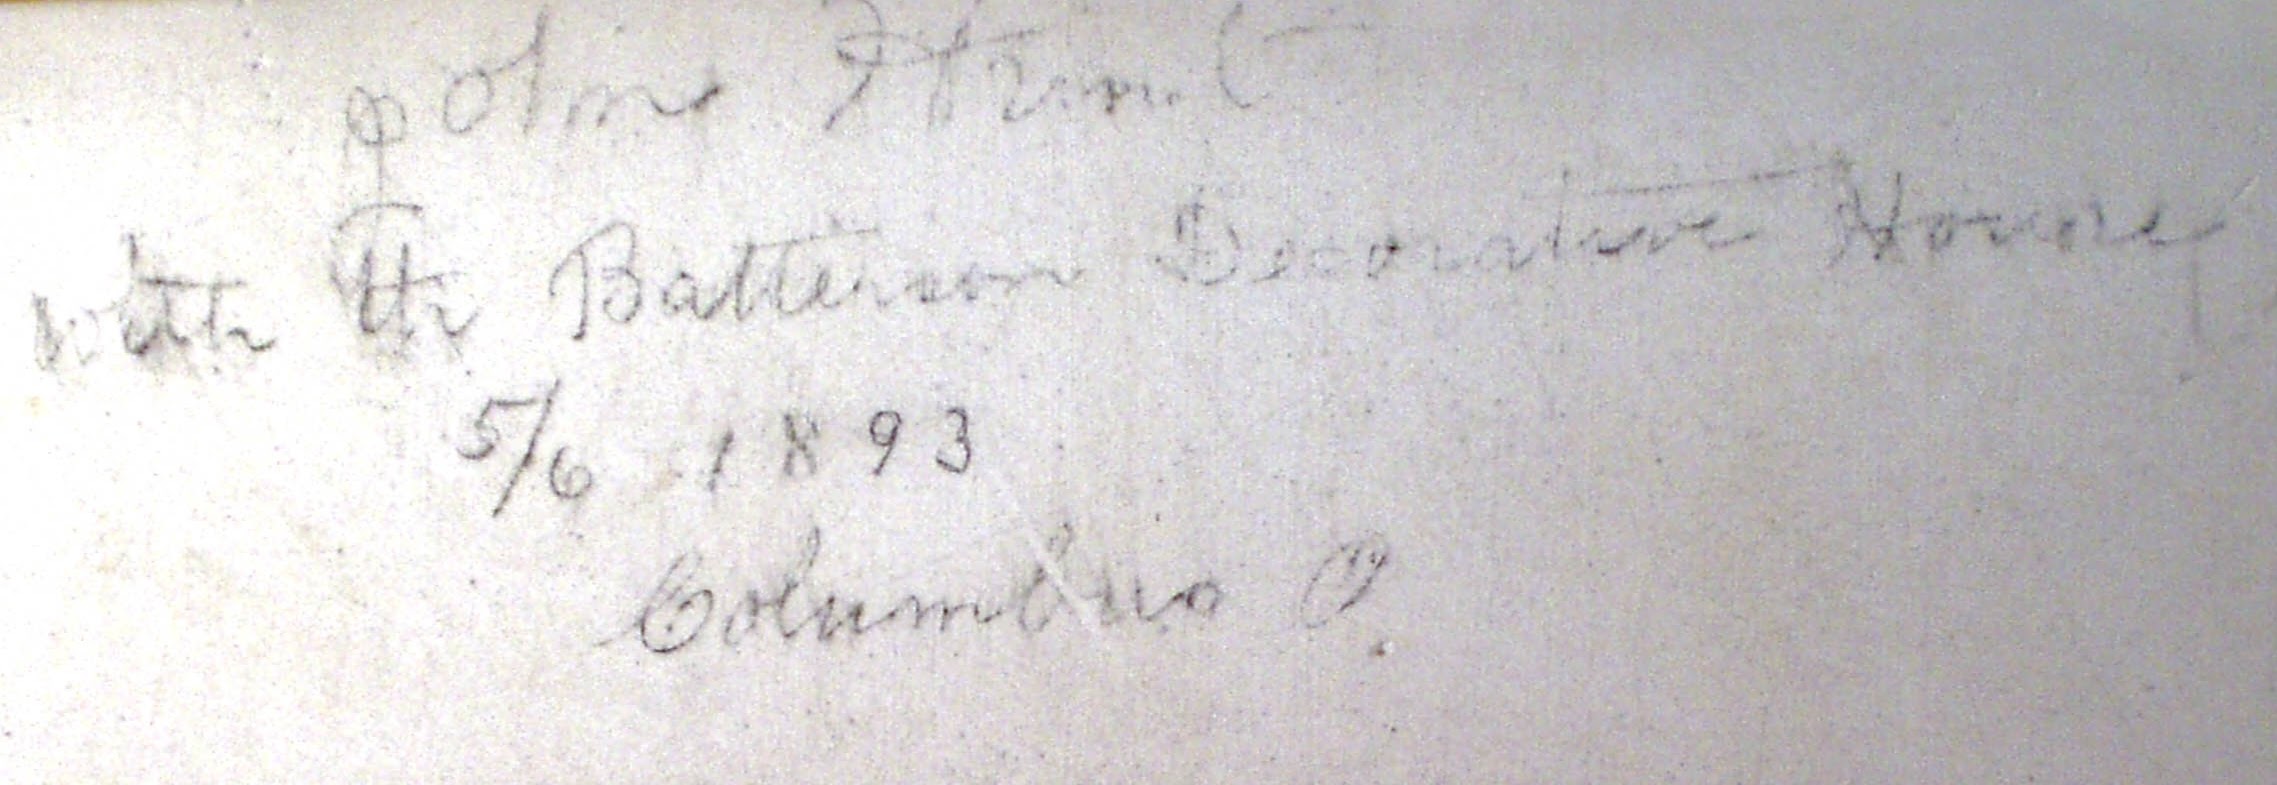 With The Batterson Decorative House,
5/6 1893
Columbus O.